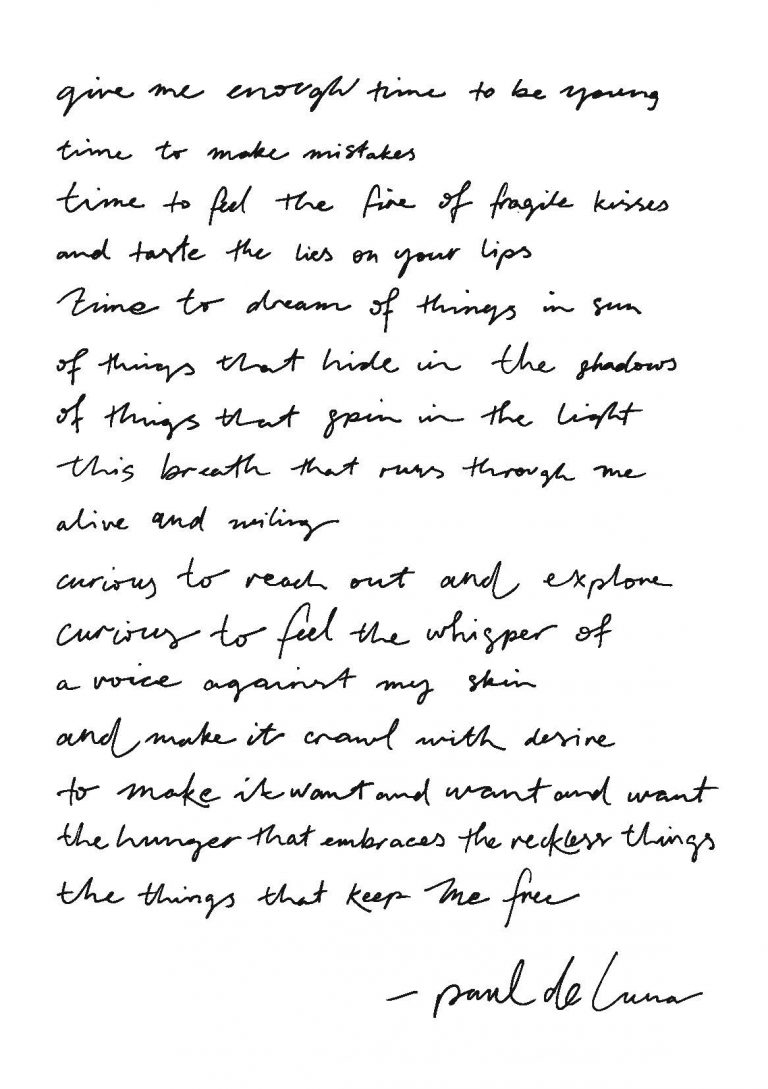 give me enough time to be young
time to make mistakes
time to feel the fire of fragile kisses
and taste the lies on your lips
time to dream of things in sun
of things that hide in the shadows
of things that spin in the light
this breath that runs through me
alive and smiling
curious to reach out and explore
curious to feel the whisper of
a voice against my skin
and make it crawl with desire
to make it want and want and want
the hunger that embraces the reckless things
the things that keep me free
– paul de luna